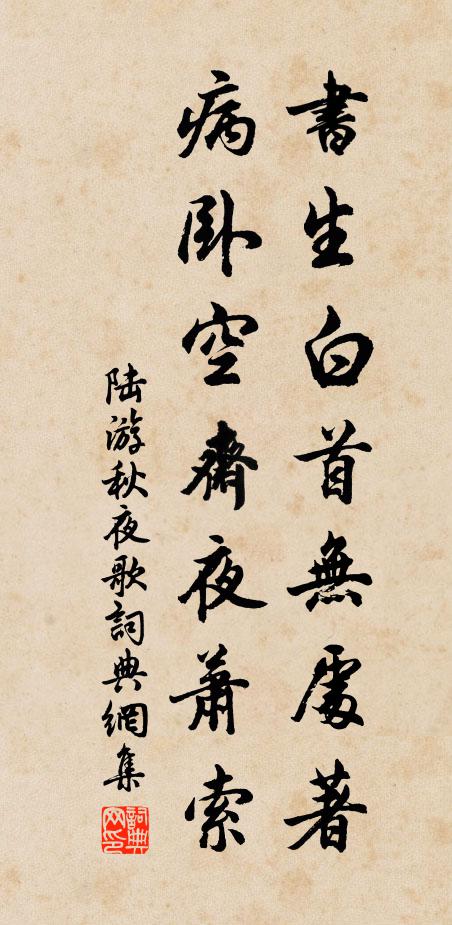 書生白首無處著
病卧空齋夜蕭索
陆游秋夜歌詞典網集
詞典
网印